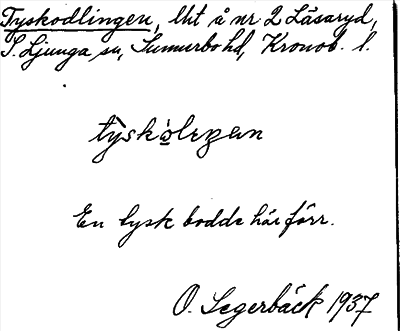 Tyskodlingen, lht å nr 2 Låsaryd,
S. Ljunga sn, Sunnerbo hd, Kronob. l.
En tysk bodde här förr.
O. Segerbäck 1937